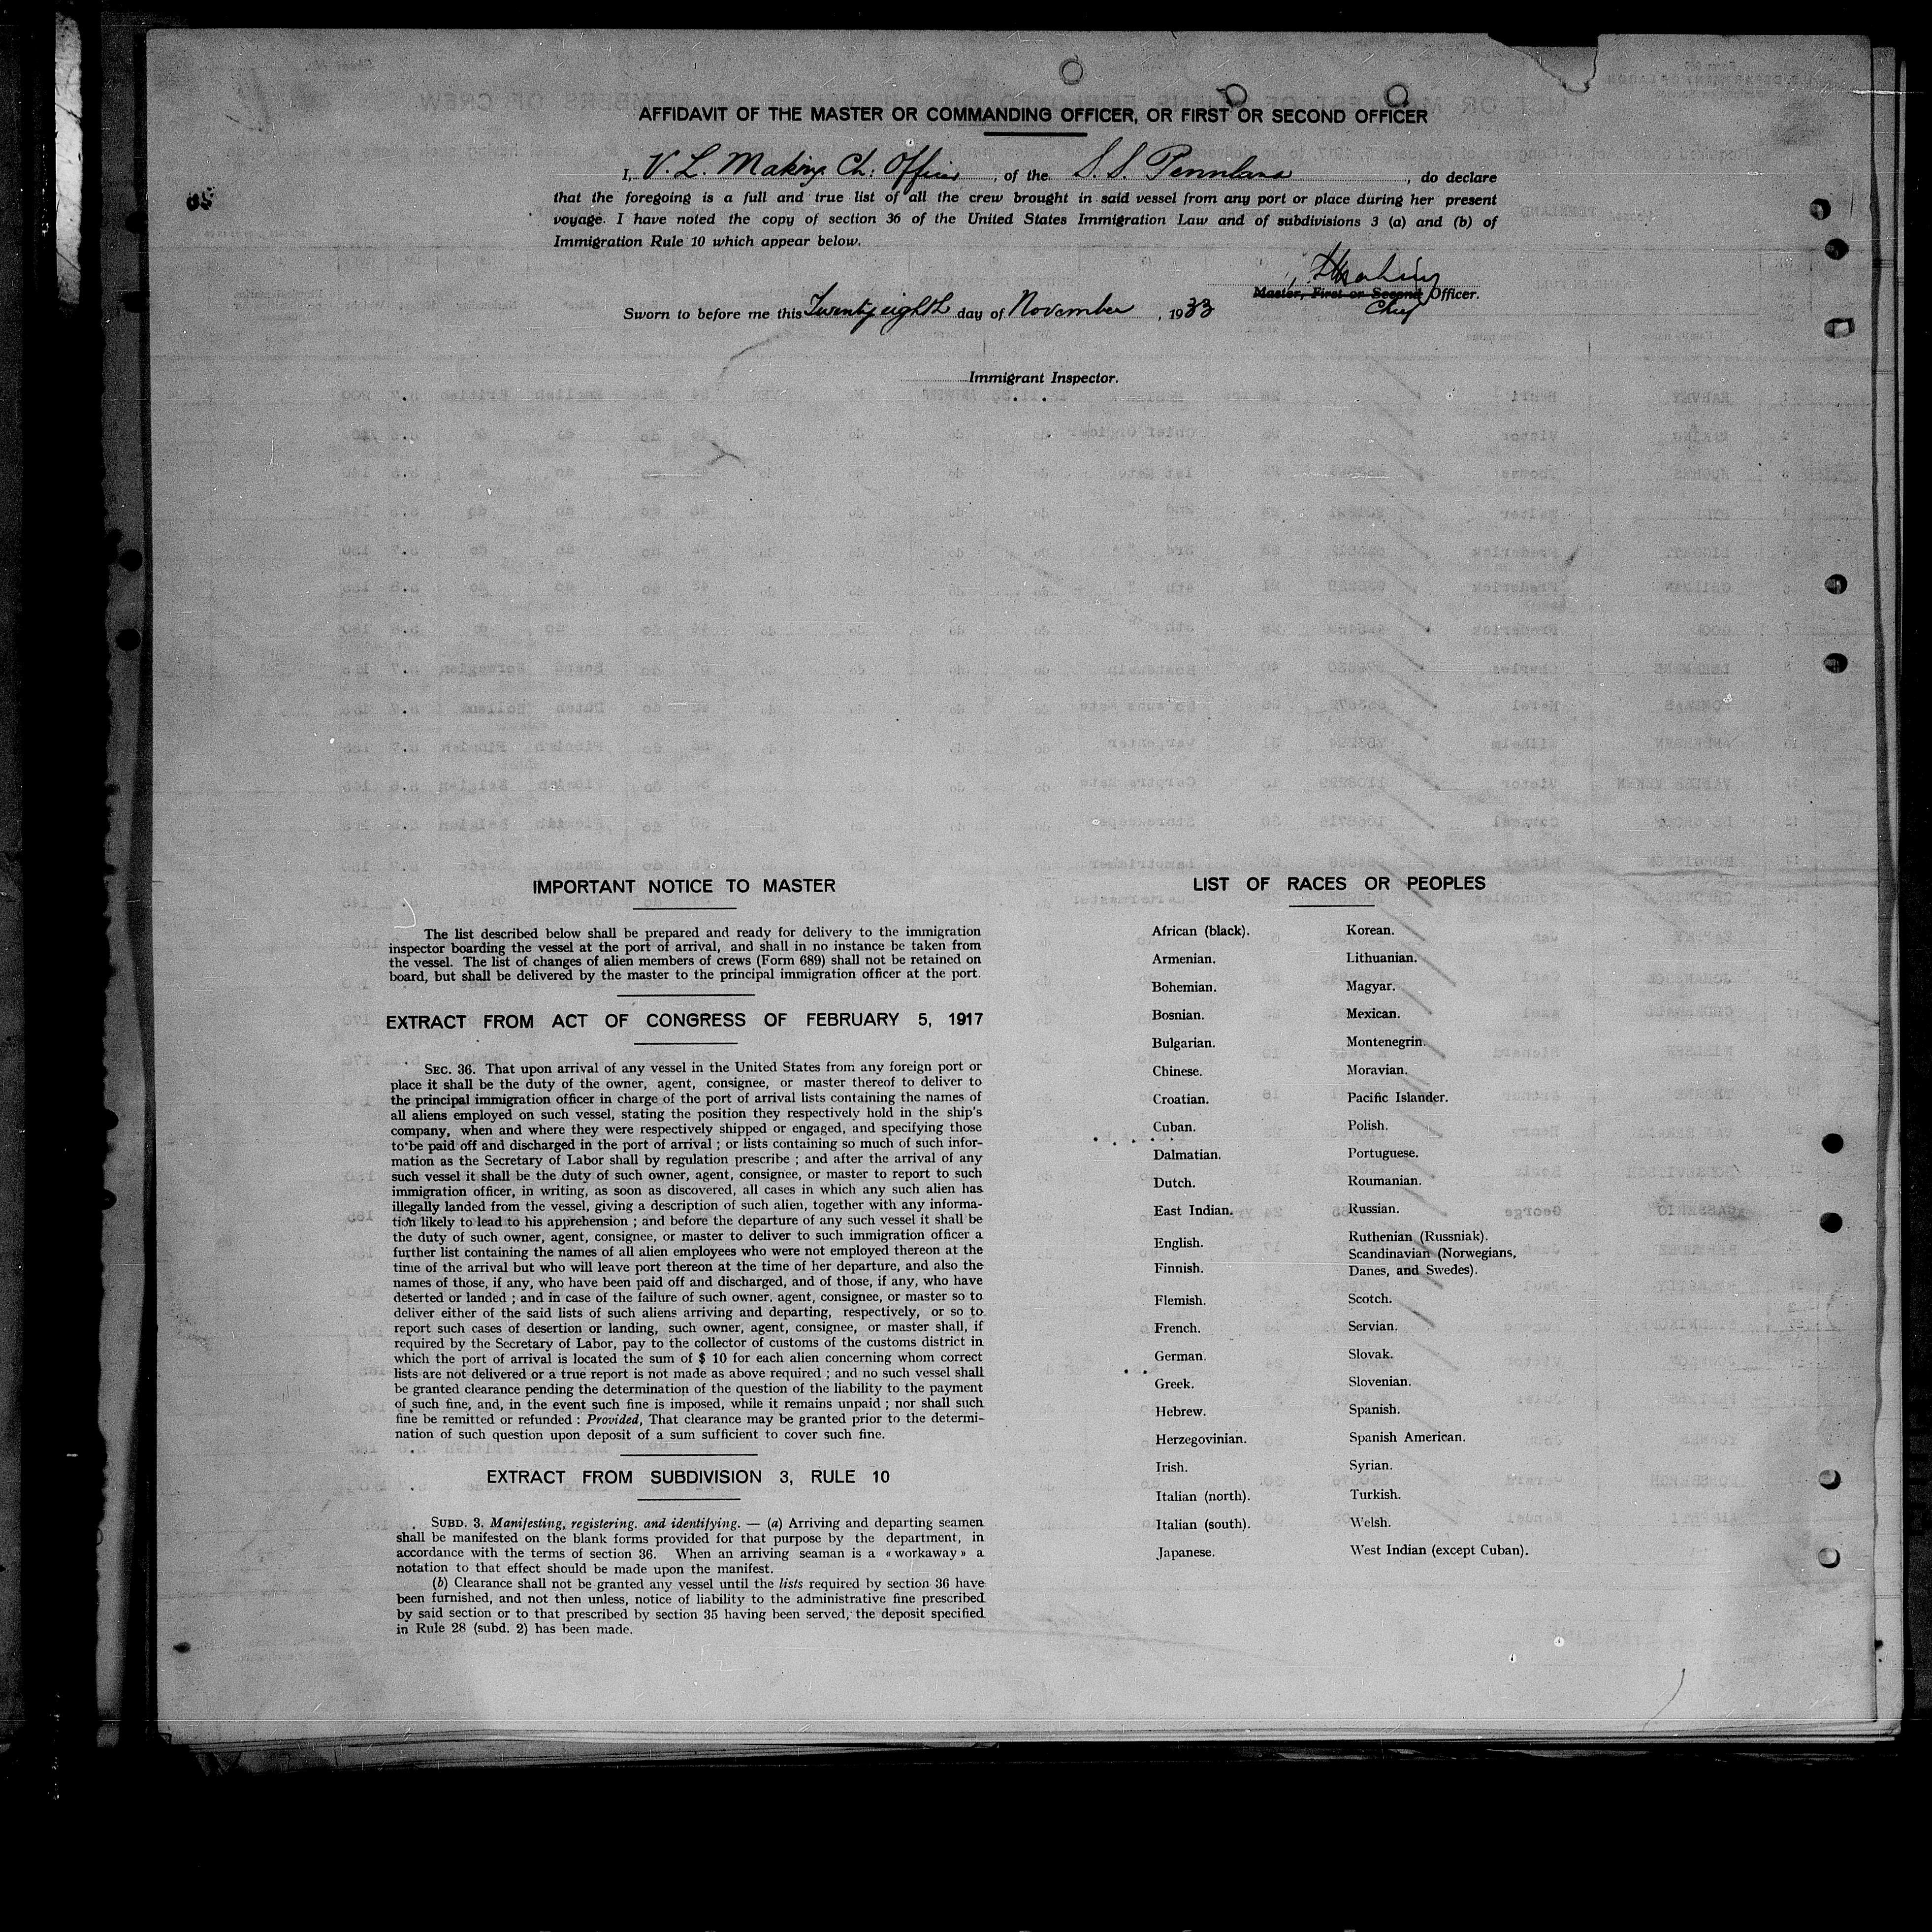 AFFIDAVIT OF THE MASTER OR COMMANDING OFFICER, OR FIRST OR SECOND OFFICER
I, V. L. Making. Ch. Officer, of the S. S. Pennland, do declare
that the foregoing is a full and true list of all the crew brought in said vessel from any port or place during her present
voyage. I have noted the copy of section 36 of the United States Immigration Law and of subdivisions 3 (a) and (b) of
Immigration Rule 10 which appear below.
Master, First or Second Officer.
Chief
Sworn to before me this Twenty eighth day of November, 1933
Immigrant Inspector.
IMPORTANT NOTICE TO MASTER
The list described below shall be prepared and ready for delivery to the immigration
inspector boarding the vessel at the port of arrival, and shall in no instance be taken from
the vessel. The list of changes of alien members of crews (Form 689) shall not be retained on
board, but shall be delivered by the master to the principal immigration officer at the port.
EXTRACT FROM ACT OF CONGRESS OF FEBRUARY 5, 1917
SEC. 36. That upon arrival of any vessel in the United States from any foreign port or
place it shall be the duty of the owner, agent, consignee, or master thereof to deliver to
the principal immigration officer in charge of the port of arrival lists containing the names of
all aliens employed on such vessel, stating the position they respectively hold in the ship's
company, when and where they were respectively shipped or engaged, and specifying those
to be paid off and discharged in the port of arrival ; or lists containing so much of such infor-
mation as the Secretary of Labor shall by regulation prescribe ; and after the arrival of any
such vessel it shall be the duty of such owner, agent, consignee, or master to report to such
immigration officer, in writing, as soon as discovered, all cases in which any such alien has
illegally landed from the vessel, giving a description of such alien, together with any informa-
tion likely to lead to his apprehension ; and before the departure of any such vessel it shall be
the duty of such owner, agent, consignee, or master to deliver to such immigration officer a
further list containing the names of all alien employees who were not employed thereon at the
time of the arrival but who will leave port thereon at the time of her departure, and also the
names of those, if any, who have been paid off and discharged, and of those, if any, who have
deserted or landed ; and in case of the failure of such owner, agent, consignee, or master so to
deliver either of the said lists of such aliens arriving and departing, respectively, or so to
report such cases of desertion or landing, such owner, agent, consignee, or master shall, if
required by the Secretary of Labor, pay to the collector of customs of the customs district in
which the port of arrival is located the sum of $ 10 for each alien concerning whom correct
lists are not delivered or a true report is not made as above required ; and no such vessel shall
be granted clearance pending the determination of the question of the liability to the payment
of such fine, and, in the event such fine is imposed, while it remains unpaid ; nor shall such
fine be remitted or refunded : Provided, That clearance may be granted prior to the determi-
nation of such question upon deposit of a sum sufficient to cover such fine.
EXTRACT FROM SUBDIVISION 3, RULE 10
SUBD. 3. Manifesting, registering, and identifying. — (a) Arriving and departing seamen
shall be manifested on the blank forms provided for that purpose by the department, in
accordance with the terms of section 36. When an arriving seaman is a « workaway » a
notation to that effect should be made upon the manifest.
(b) Clearance shall not be granted any vessel until the lists required by section 36 have
been furnished, and not then unless, notice of liability to the administrative fine prescribed
by said section or to that prescribed by section 35 having been served, the deposit specified
in Rule 28 (subd. 2) has been made.
LIST OF RACES OR PEOPLES
African (black).
Armenian.
Bohemian.
Bosnian.
Bulgarian.
Chinese.
Croatian.
Cuban.
Dalmatian.
Dutch.
East Indian.
English.
Finnish.
Flemish.
French.
German.
Greek.
Hebrew.
Herzegovinian.
Irish.
Italian (north).
Italian (south).
Japanese.
Korean.
Lithuanian.
Magyar.
Mexican.
Montenegrin.
Moravian.
Pacific Islander.
Polish.
Portuguese.
Roumanian.
Russian.
Ruthenian (Russniak).
Scandinavian (Norwegians,
Danes, and Swedes).
Scotch.
Servian.
Slovak.
Slovenian.
Spanish.
Spanish American.
Syrian.
Turkish.
Welsh.
West Indian (except Cuban).